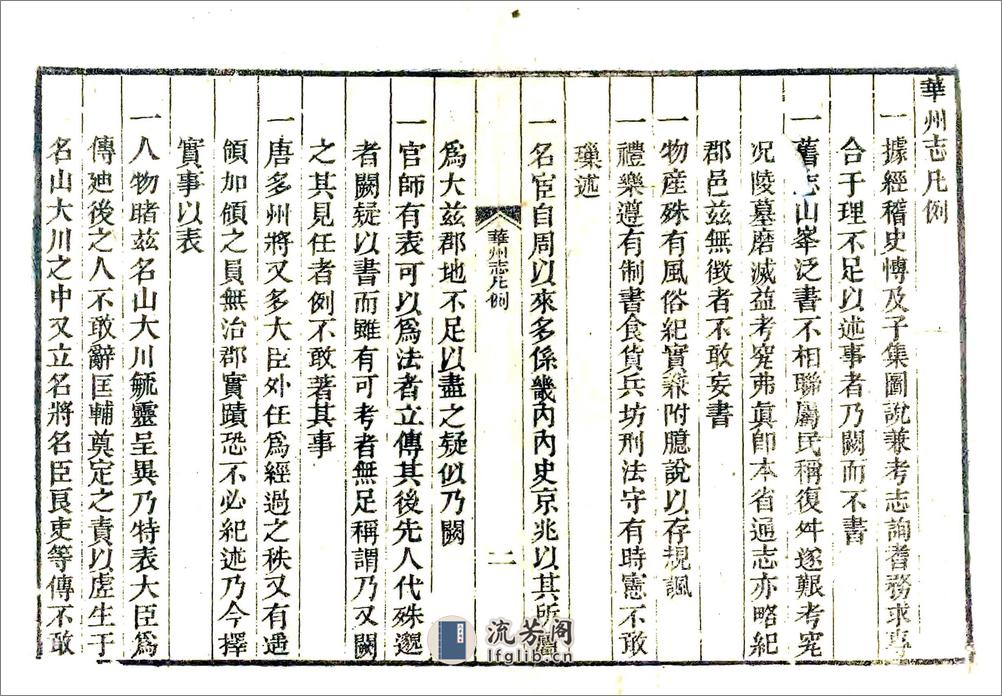 華州志凡例
一據經稽史愽及子集圖說兼考志詢耆務求專
合于理不足以述事者乃闕而不書
一舊志山峯泛書不相聯屬民稱復舛遂艱考究
况陵墓磨滅益考究弗眞即本省通志亦略紀
郡邑兹無徴者不敢妄書
一物産殊有風俗紀實兼附臆說以存規諷
一禮樂遵有制書食貨兵坊刑法守有時憲不敢
瓅述
一名宦自周以來多係畿内内史京兆以其所屬
華州志凡例
二
爲大兹郡地不足以盡之疑似乃闕
一官師有表可以爲法者立傳其後先人代殊邈
者闕疑以書而雖有可考者無足稱謂乃又闕
之其見任者例不敢著其事
一唐多州將又多大臣外任爲經過之秩又有遥
領加領之員無治郡實蹟恐不必紀述乃今擇
實事以表
一人物睹兹名山大川毓靈呈異乃特表大臣爲
傳廸後之人不敢辭匡輔奠定之責以虚生于
名山大川之中又立名將名臣良吏等傳不敢
流芳阁
lfglib.cn